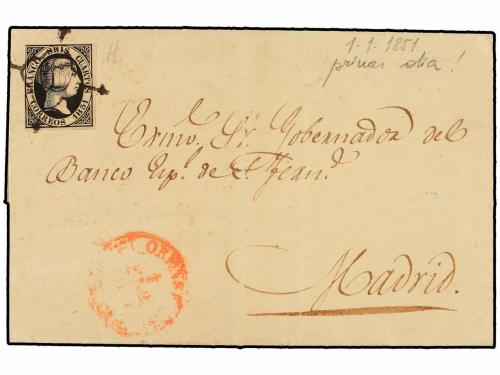 FRANCO SEIS CUARTOS
CORREOS 1851
1-1-1851
primer dia!
Exmo. Sr. Gobernador del
Banco Esp.l de Sn Fern.do
Madrid.
ORENSE
1